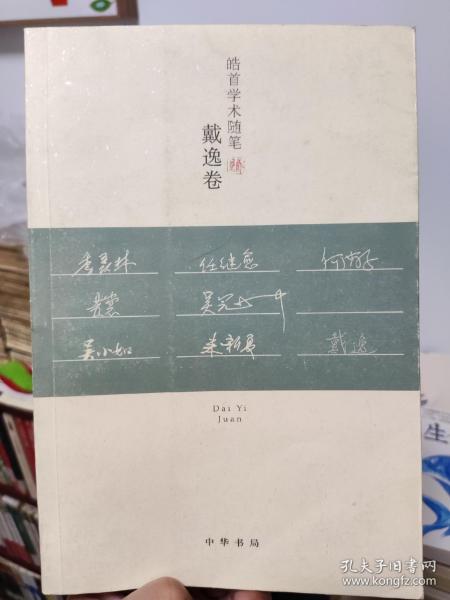 皓首学术随笔
戴逸卷
季羡林 任继愈 何兹全
黄裳 吴冠中
吴小如 来新夏 戴逸
Dai Yi
Juan
中华书局
生
孔夫子旧书网
www.kongfz.com